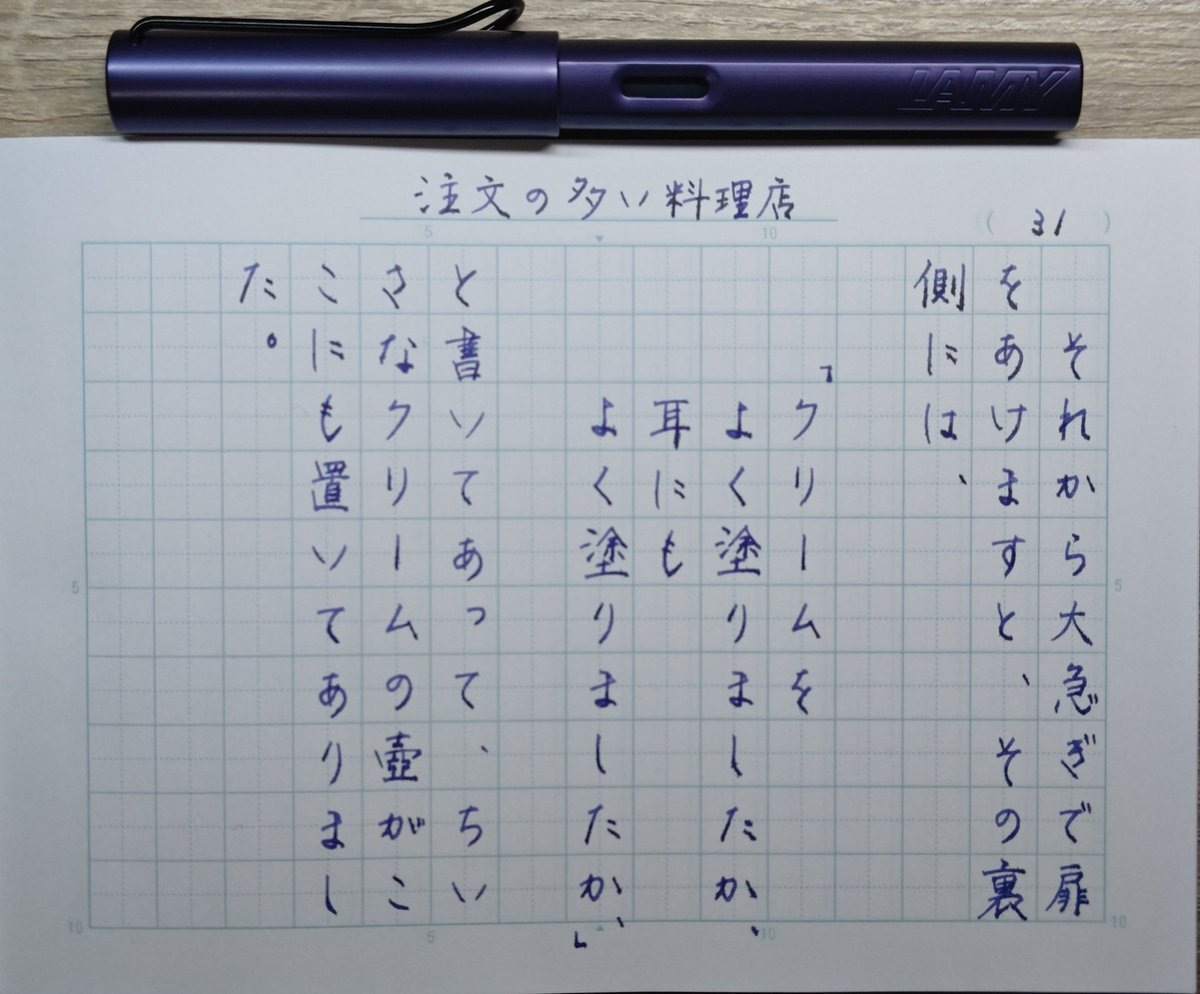 LAMY
注文の多い料理店
(31)
それから大急ぎで扉
をあけますと、その裏
側には、
「クリームを
よく塗りましたか、
耳にも
よく塗りましたか、」
と書いてあって、ちい
さなクリームの壺がこ
こにも置いてありまし
た。
5
10
5
10
5
10
5
10